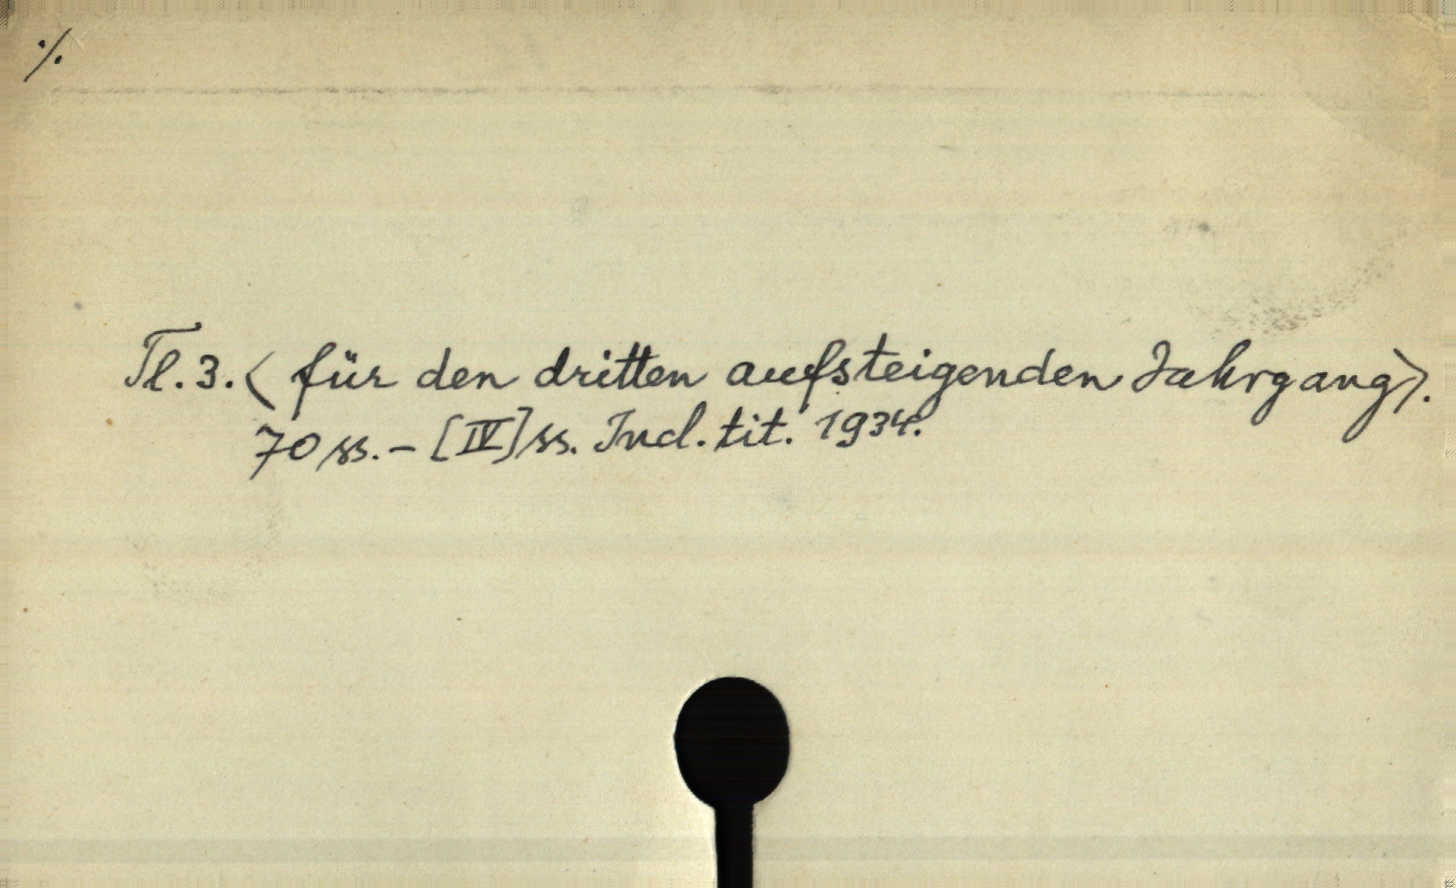 ·/.
Tl. 3. < für den dritten aufsteigenden Jahrgang>.
70 ss. - [IV] ss. Incl. tit. 1934.